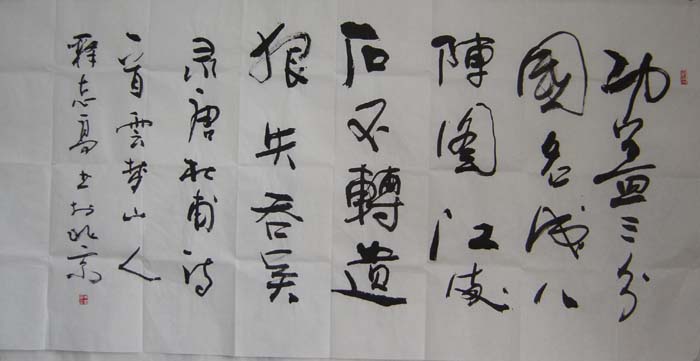 功蓋三分
國名成八
陣圖江流
石不轉遺
恨失吞吴
录唐杜甫诗
一首雲梦山人
志高书於北京